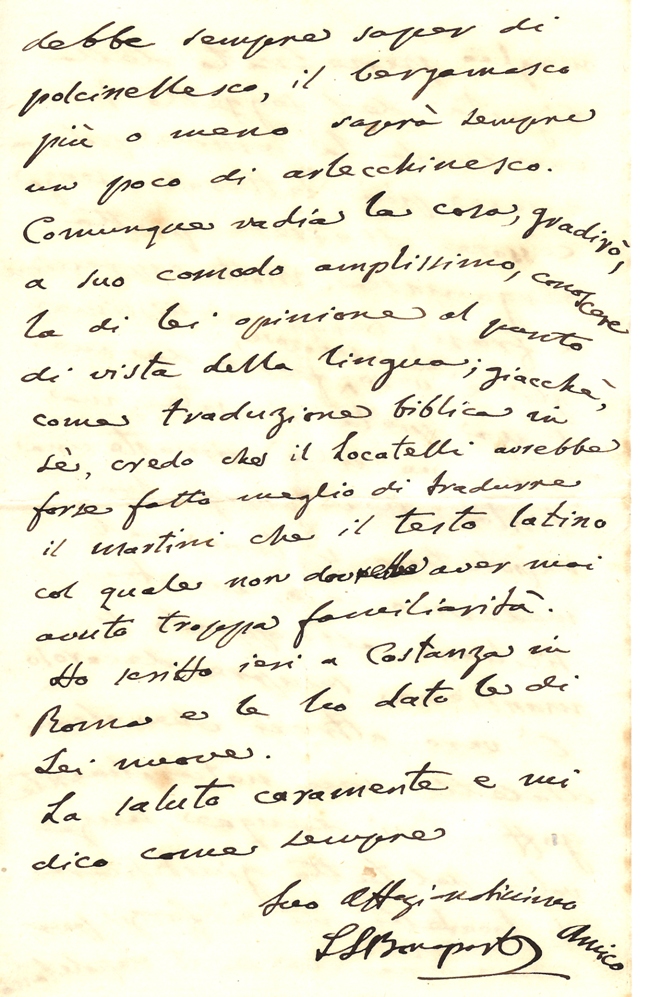 debbe sempre saper di
polcinellesco, il bergamasco
più o meno saprà sempre
un poco di arlecchinesco.
Comunque vadia la cosa, gradirò,
a suo comodo amplissimo, conoscere
la di lei opinione al punto
di vista della lingua; giacchè,
come traduzione biblica in
sè, credo che il Locatelli avrebbe
forse fatto meglio di tradurre
il Martini che il testo latino
col quale non dovrebbe aver mai
avuto troppa familiarità.
Ho scritto ieri a Costanza in
Roma e le ho dato le di
Lei nuove.
La saluto caramente e mi
dico come sempre
Suo Affezionatissimo Amico
LLBonaparte